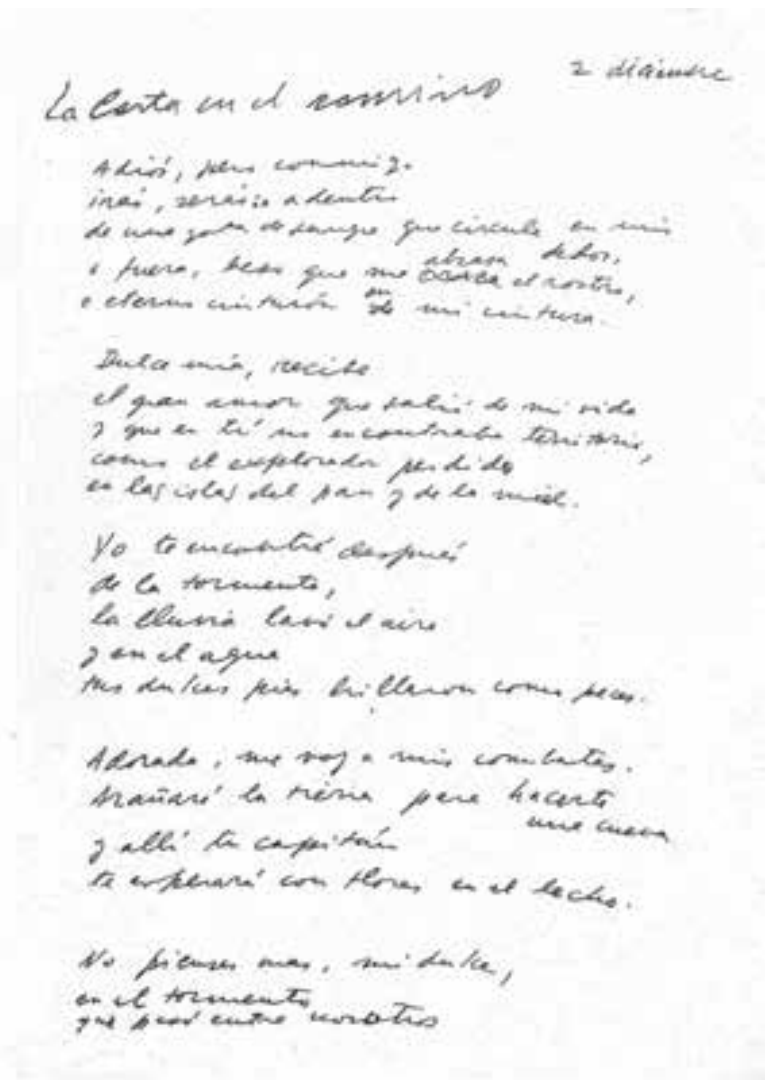 2 diciembre
La Carta en el camino
Adiós, pero conmigo
irás, serás, adentro
de una gota de sangre que circule en mis
venas,
o fuera, beso que me abrasa el rostro,
o eterno cinturón en mi cintura.
Dulce mía, recibe
el gran amor que salió de mi vida
y que en tí no encontraba territorio,
como el explorador perdido
en las islas del pan y de la miel.
Yo te encontré después
de la tormenta,
la lluvia lavó el aire
y en el agua
tus dulces pies brillaron como peces.
Adorada, me voy a mis combates.
Arañaré la tierra para hacerte
una cueva
y allí tu capitán
te esperará con flores en el lecho.
No pienses mas, mi dulce,
en el tormento
que pasó entre nosotros